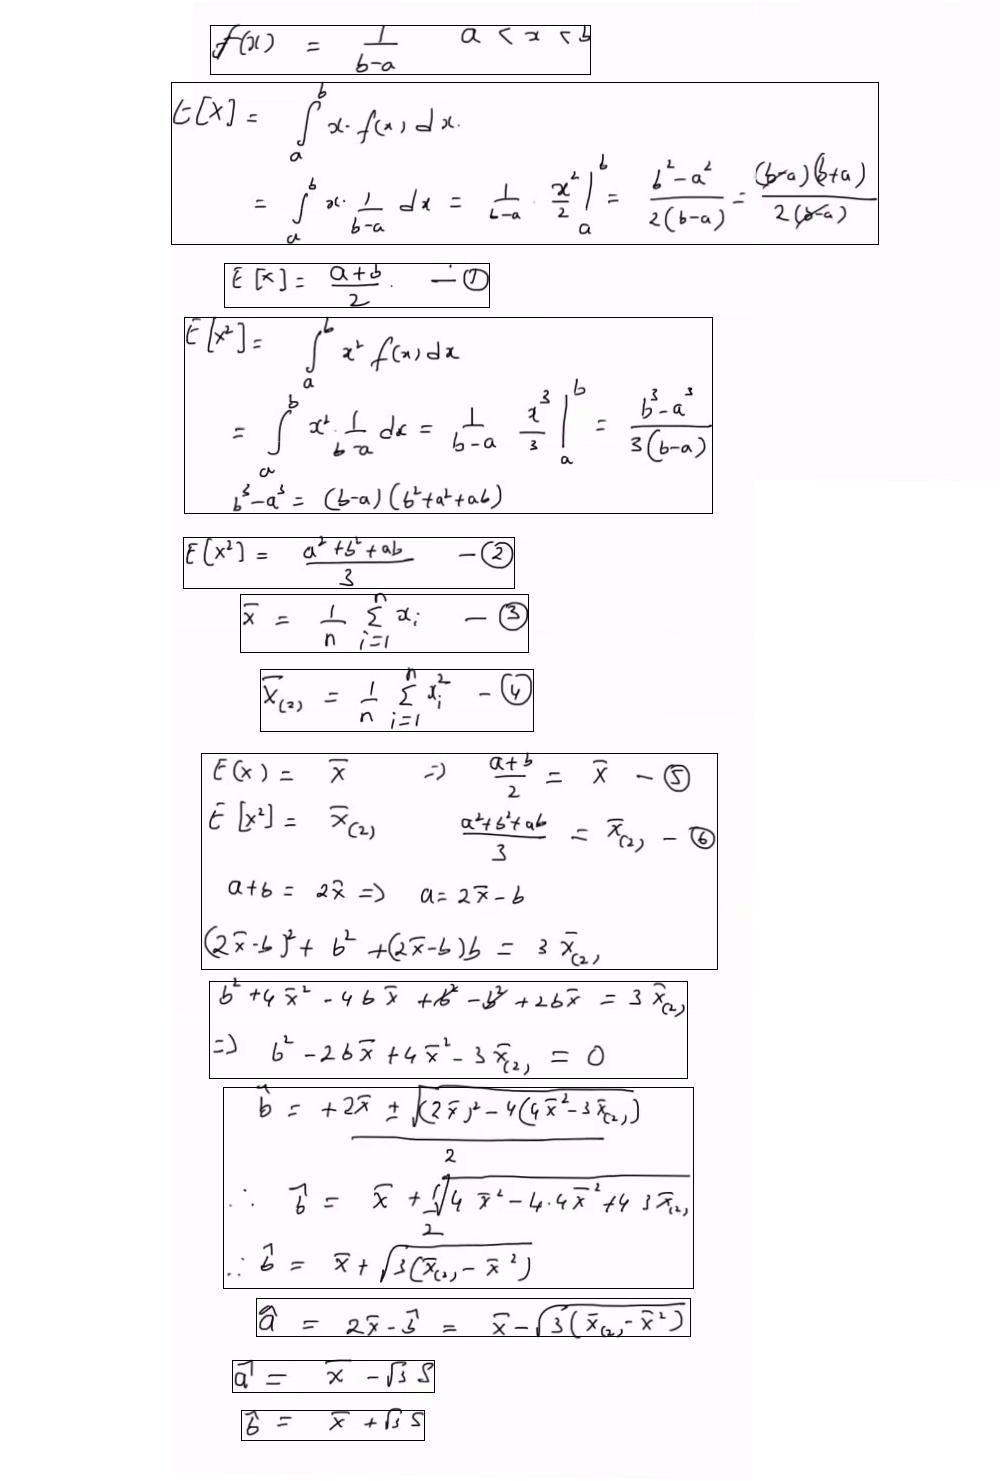 f(x) = 1/(b-a)   a < x < b
E[X] = ∫_a^b x. f(x) dx.
= ∫_a^b x. 1/(b-a) dx = 1/(b-a) . x²/2 |_a^b = (b²-a²)/(2(b-a)) = ((b-a)(b+a))/(2(b-a))
E[x] = (a+b)/2 . — ①
E[x²] = ∫_a^b x² f(x) dx
= ∫_a^b x². 1/(b-a) dx = 1/(b-a) x³/3 |_a^b = (b³-a³)/(3(b-a))
b³-a³ = (b-a)(b²+a²+ab)
E[x²] = (a²+b²+ab)/3 — ②
x̄ = 1/n Σ_{i=1}^n x_i — ③
x̄_(2) = 1/n Σ_{i=1}^n x_i² — ④
E(x) = x̄ ⇒ (a+b)/2 = x̄ — ⑤
E[x²] = x̄_(2)   (a²+b²+ab)/3 = x̄_(2) — ⑥
a+b = 2x̄ ⇒ a = 2x̄-b
(2x̄-b)² + b² + (2x̄-b)b = 3x̄_(2)
b²+4x̄²-4bx̄+b²-b²+2bx̄ = 3x̄_(2)
⇒ b²-2bx̄+4x̄²-3x̄_(2) = 0
b̂ = (+2x̄ ± √((2x̄)²-4(4x̄²-3x̄_(2))))/2
∴ b̂ = x̄ + √(4x̄²-4.4x̄²+4 3x̄_(2))/2
∴ b̂ = x̄ + √(3(x̄_(2)-x̄²))
â = 2x̄-b̂ = x̄-√(3(x̄_(2)-x̄²))
â = x̄ - √3 S
b̂ = x̄ + √3 S